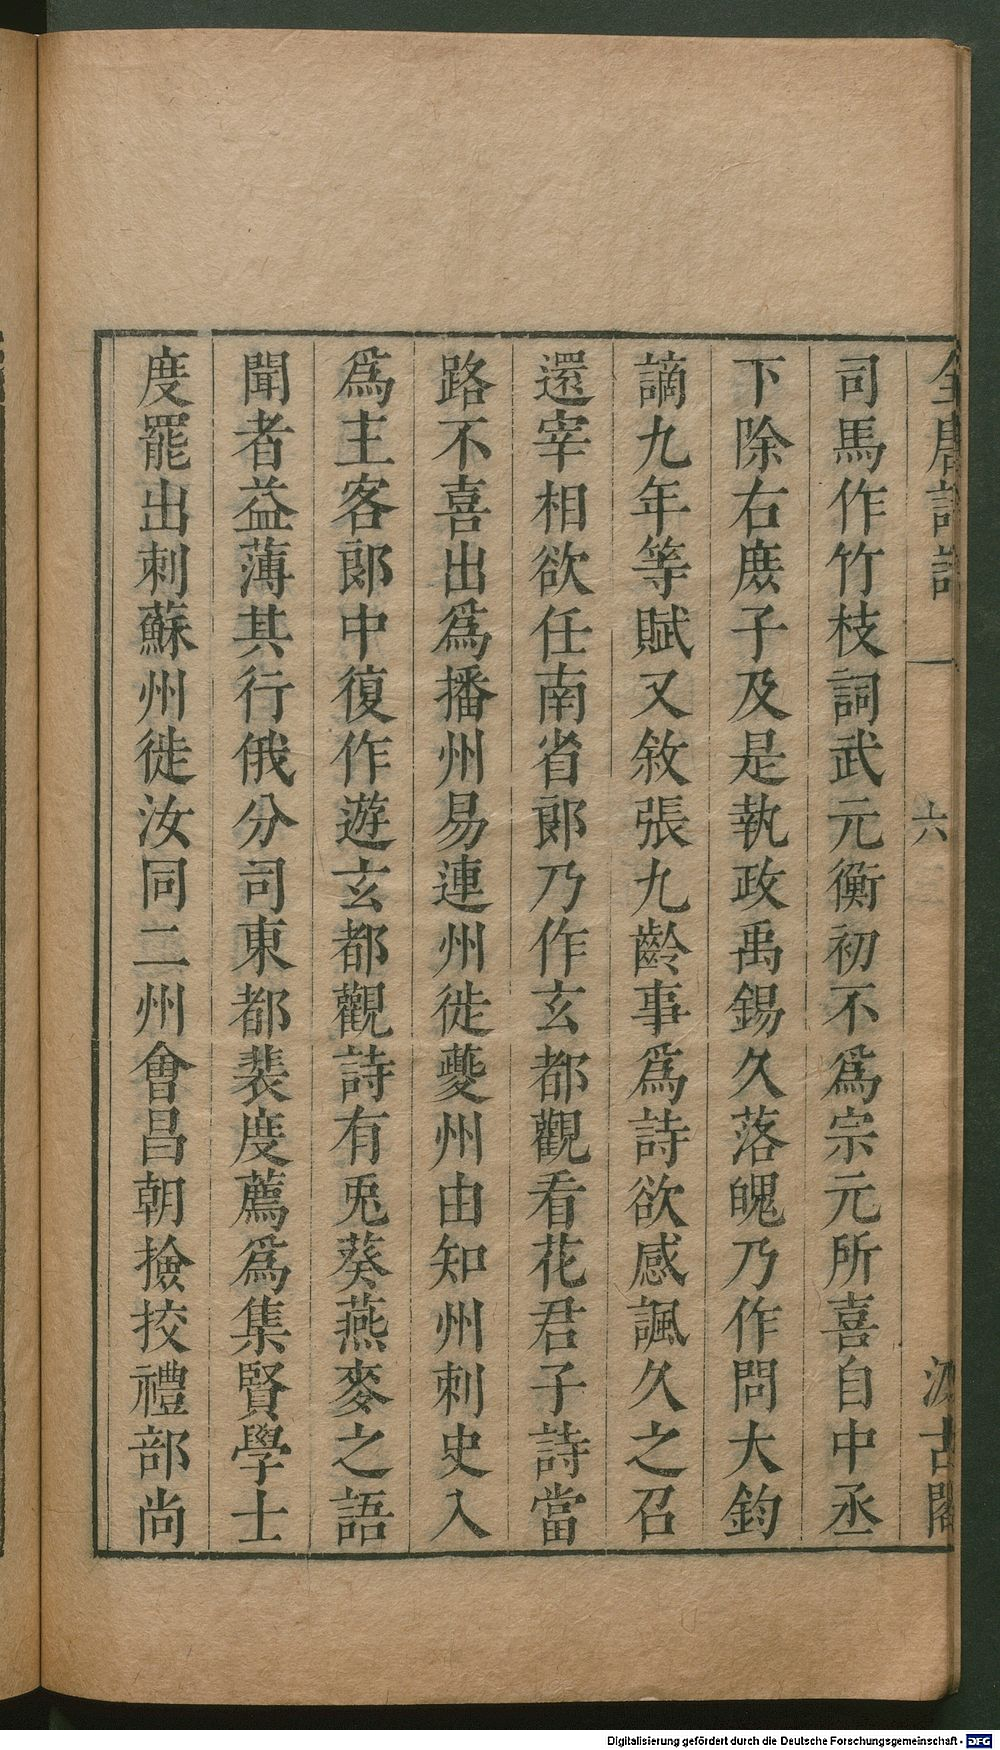 全唐詩話 一 六 汲古閣
司馬作竹枝詞武元衡初不爲宗元所喜自中丞
下除右庶子及是執政禹錫久落魄乃作問大鈞
謫九年等賦又敘張九齡事爲詩欲感諷久之召
還宰相欲任南省郎乃作玄都觀看花君子詩當
路不喜出爲播州易連州徙夔州由知州刺史入
爲主客郎中復作遊玄都觀詩有兎葵燕麥之語
聞者益薄其行俄分司東都裴度薦爲集賢學士
度罷出刺蘇州徙汝同二州會昌朝撿挍禮部尚
Digitalisierung gefördert durch die Deutsche Forschungsgemeinschaft - DFG